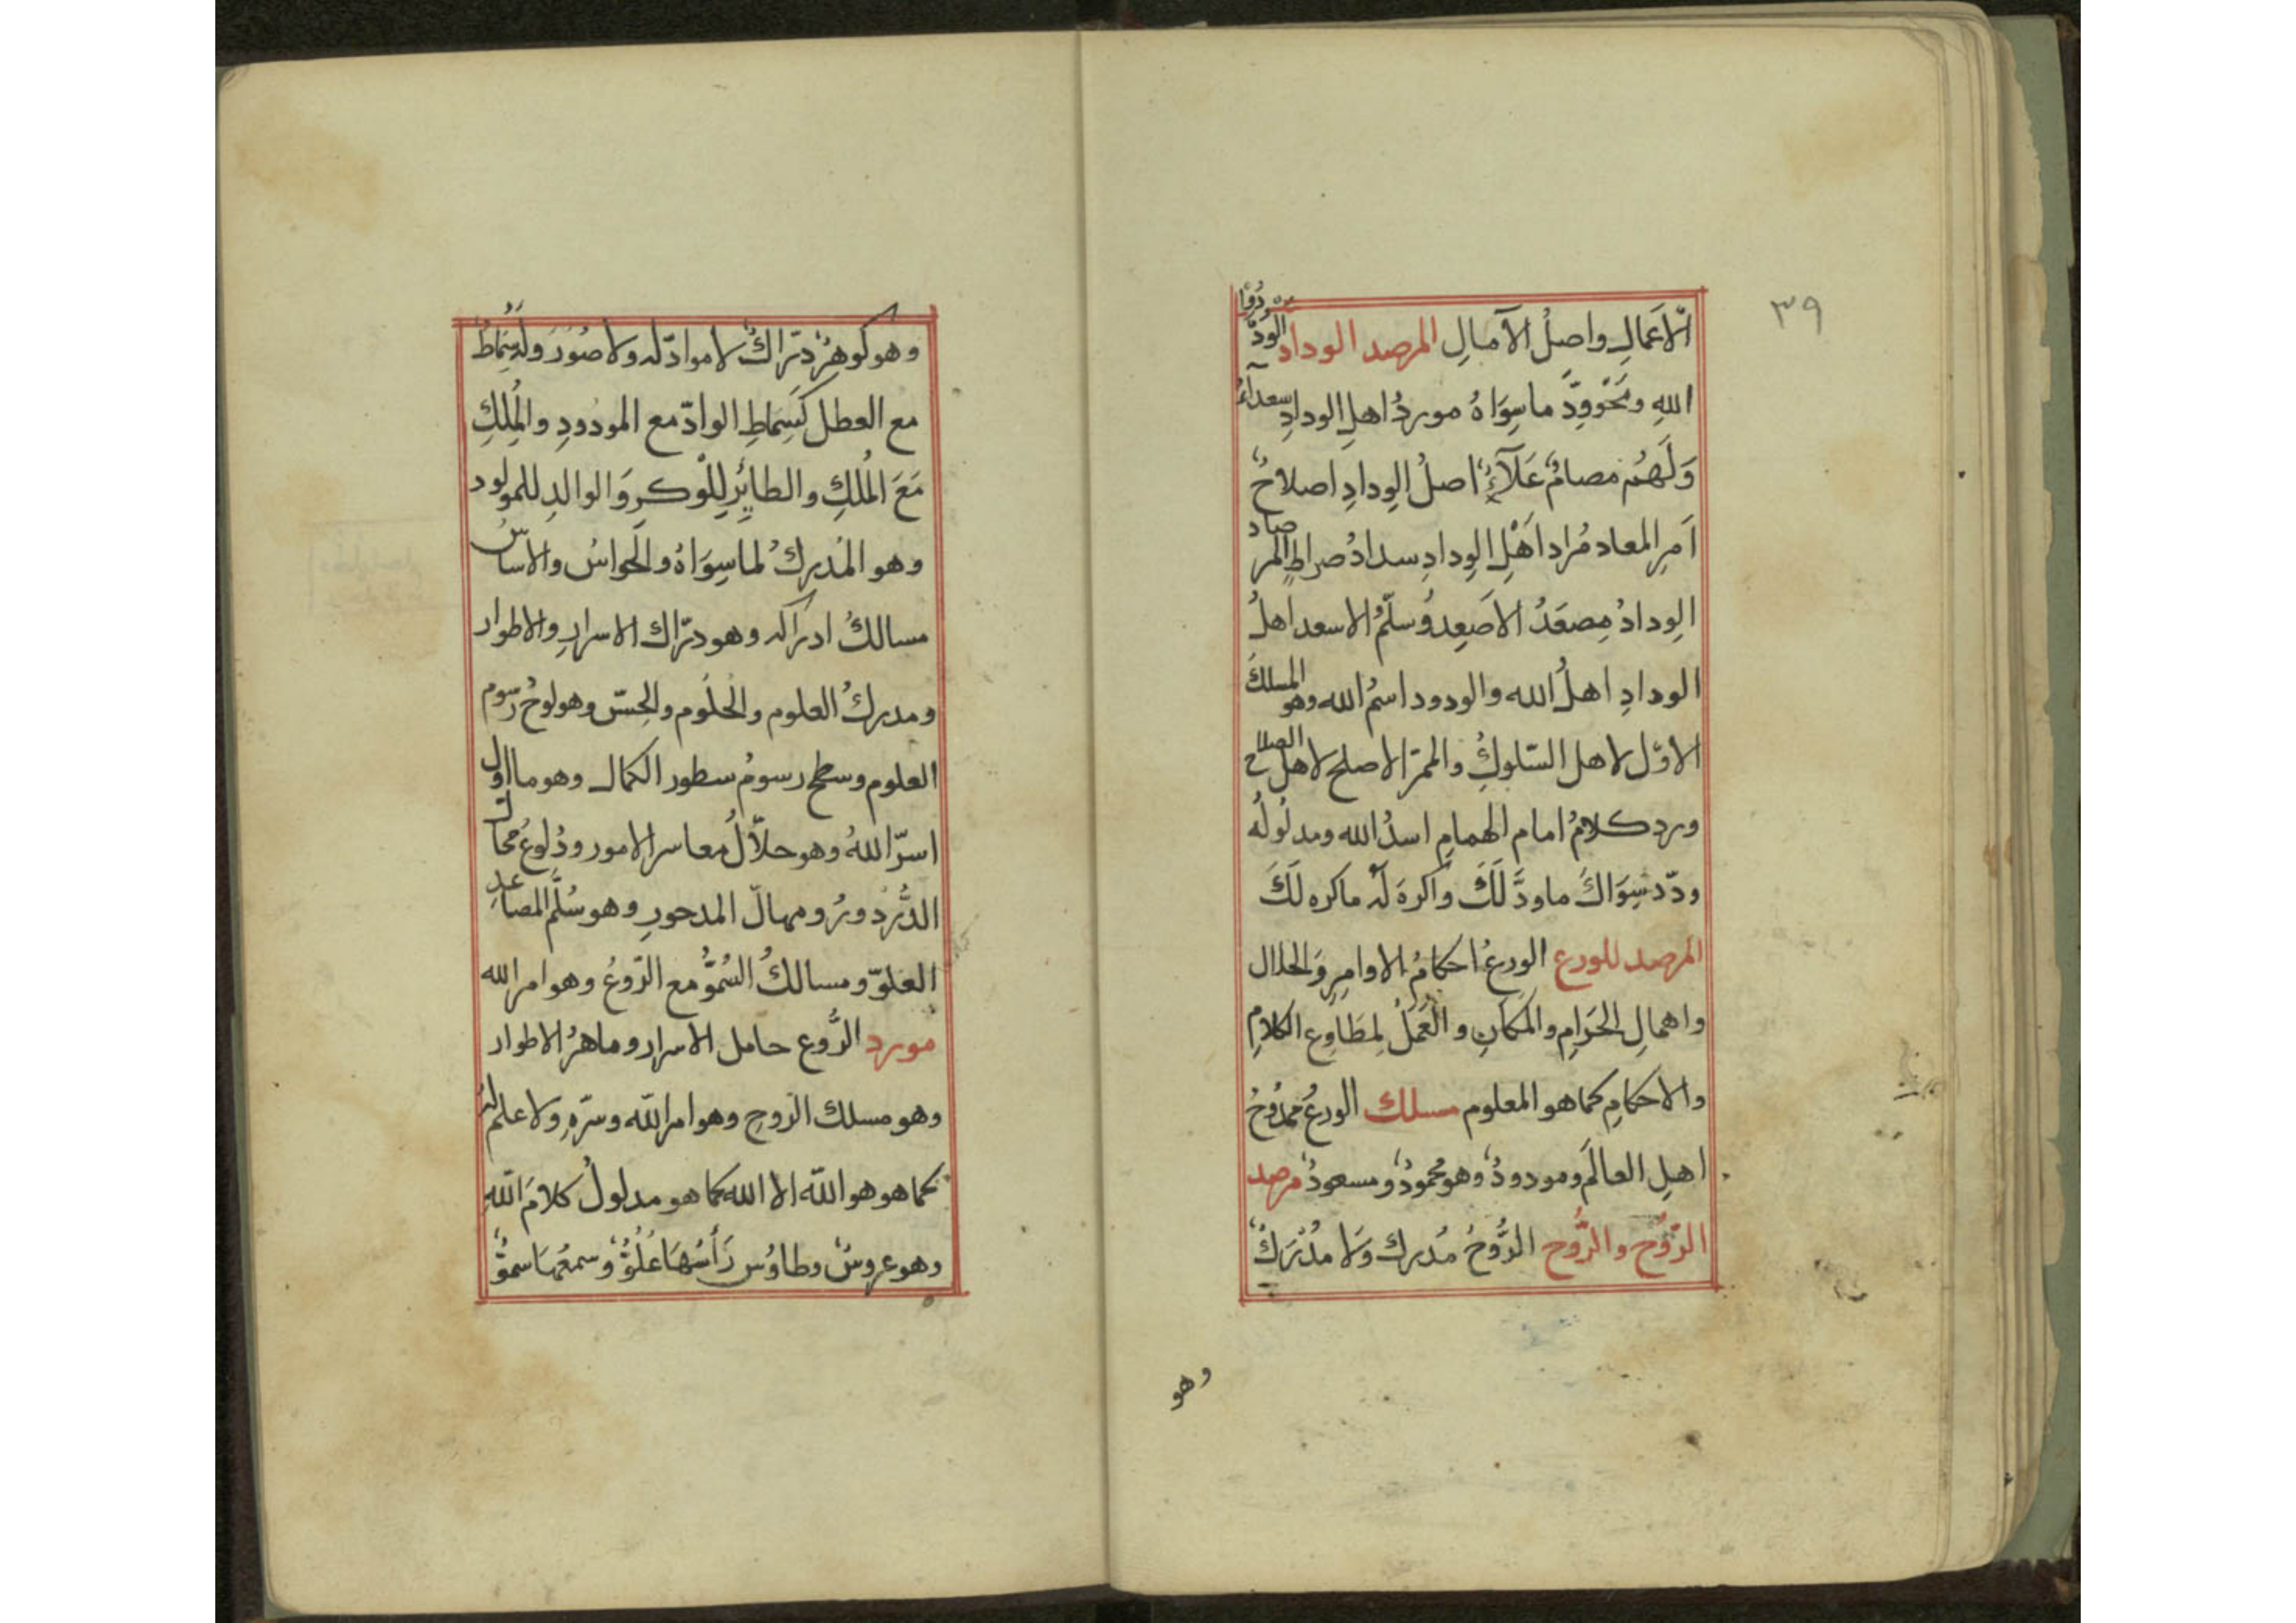 ٣٩
الاَعمالِ واصلُ الآمالِ المرصد الوداد الوُدُّ
اللهِ ومَحْوُ وِدِّ ماسِوَاهُ موردُ اهلِ الودادِ سعدآءُ
وَلَهُم مصامٌ عَلَآءٌ اصلُ الوِدادِ اصلاحُ
اَمرِ المعاد مُراد اَهْلِ الوِدادِ سدادُ صراطِ المرصاد
الوِدادُ مِصعَدُ الاَصعِدِ وُسلّمُ الاسعد اهلُ
الودادِ اهلُ الله والودود اسمُ الله وهو المسلك
الاوّل لاهل السّلوكِ والممرّ الاصلح لاهل الصلاح
ورد كلامُ امام الهمامِ اسدُ الله ومدلُولُه
ودّد سِوَاكَ ماودَّ لَكَ واَكرهَ لَه ماكره لَكَ
المرصد للورع الورعُ احكامُ الاوامِرِ وَالحلال
واهمالِ الحَرَامِ والمكَانِ والعَمَلُ لِمطَاوِعِ الكلامِ
والاحكامِ كماهو المعلوم مسلك الورعُ ممدُوحُ
اهلِ العالَم ومودودٌ وهو محمُودٌ ومسعودٌ مرصد
الرَّوْح والرُّوح الرُّوحُ مُدرك وَلا مُدْرَكٌ
وهو
وهو كوهرٌ درّاكٌ لا موادّ له ولا صُوَرَ وله سِمَاطٌ
مع العطل كَسِمَاطِ الوادّ مع المودودِ والمَلِكِ
مَعَ المُلكِ والطائِرِ لِلْوكرِ وَالوالدِ للمولود
وهو المُدركُ لماسِوَاهُ والحَواسُ والاساسُ
مسالكُ ادراكه وهو درّاك الاسرارِ والاطوار
ومدركُ العلوم والحُلُوم والحِسّ وهو لوحُ رسوم
العلوم وسطحُ رسومُ سطور الكمال وهو ما اوّل
اسرّ اللهُ وهو حلاّلُ معاسر الامور
الدُّردورُ ومهالّ المدحورِ وهو سُلَّم المصاعد
العلوّ ومسالكُ السُّمُوُّ مع الرّوعُ وهو امر الله
مورد الرُّوع حامل الاسرار وماهرُ الاطوار
وهو مسلك الرّوحِ وهو امر اللّه وسرّهِ ولا علم له
كماهو هو اللّه الا الله كما هو مدلولُ كلامَ اللّهِ
وهو عروسٌ وطاوُس رَأسُهَا عُلُوٌّ وسمعُها سموٌّ